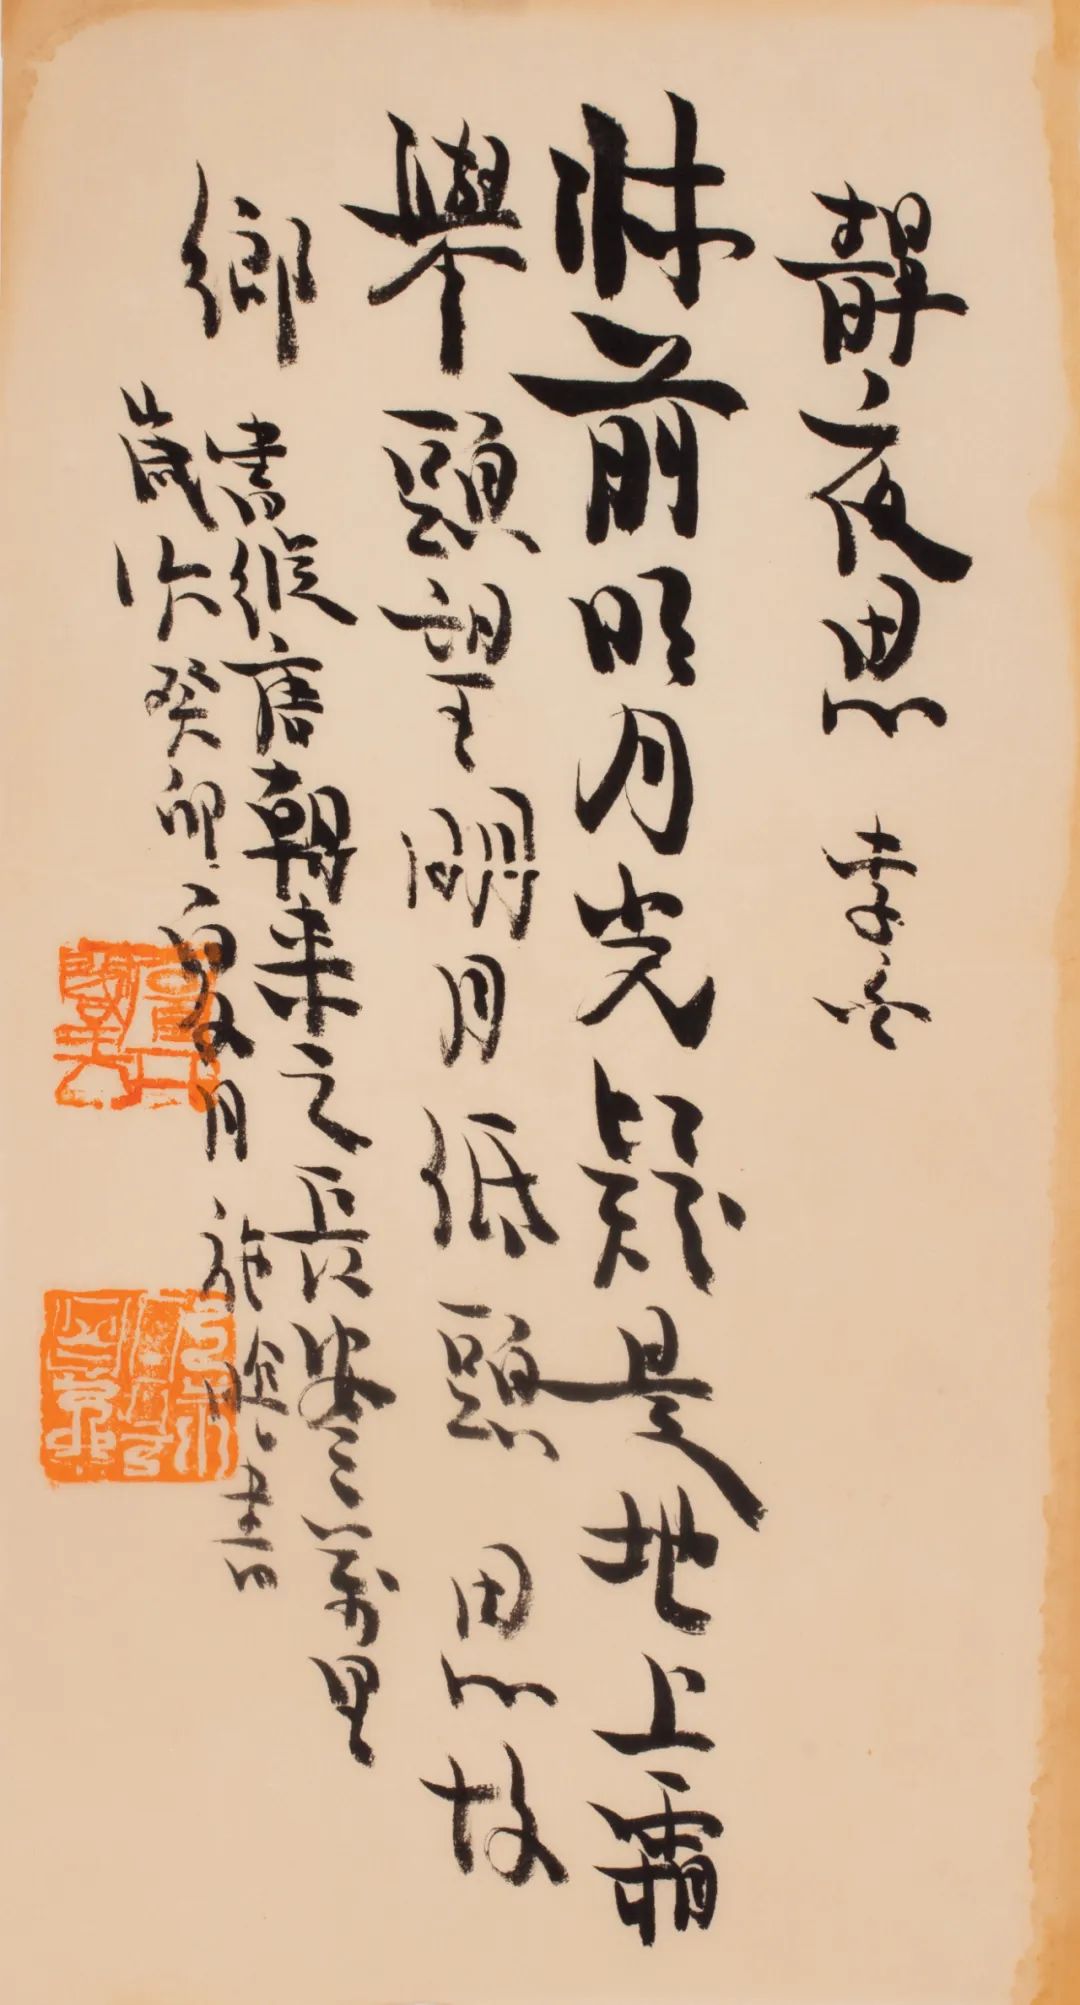 靜夜思 李
牀前明月光疑是地上霜
舉頭望明月低頭思故
鄉 書從唐朝来之長安三萬里
歲次癸卯夏月施晗書